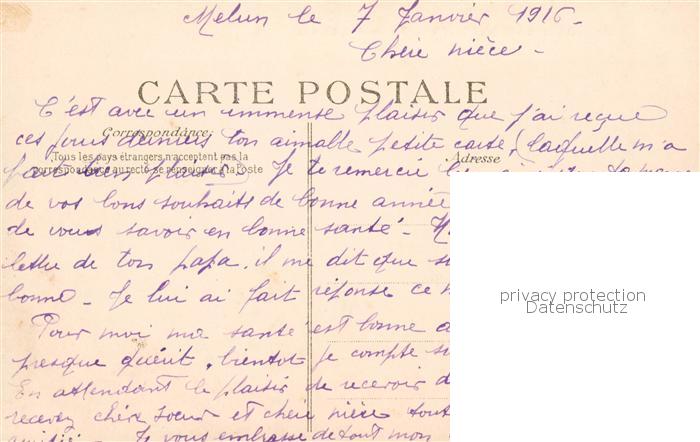 Melun le 7 Janvier 1916-
Chère nièce -
CARTE POSTALE
C'est avec un immense plaisir que j'ai reçue
Correspondance
ces jours derniers ton aimable petite carte, laquelle m'a
Tous les pays étrangers n'acceptent pas la
Adresse
correspondance au recto, se renseigner à la Poste
fait bien plaisir. Je te remercie
de vos bons souhaits de bonne année
de vous savoir en bonne santé -
lettre de ton papa, il me dit que
bonne - Je lui ai fait réponse ce
privacy protection
Datenschutz
Pour moi ma santé est bonne
presque guérit, bientôt je compte
En attendant le plaisir de recevoir
recevez chère soeur et chère nièce
Je vous embrasse de tout mon